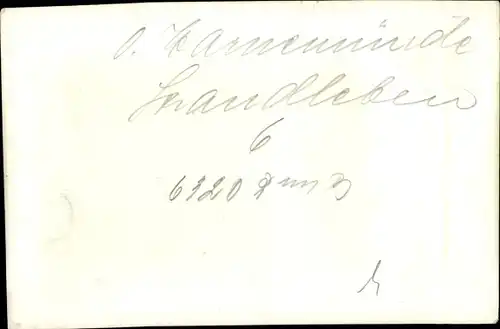 O. Warnemünde
Strandleben
6
6320